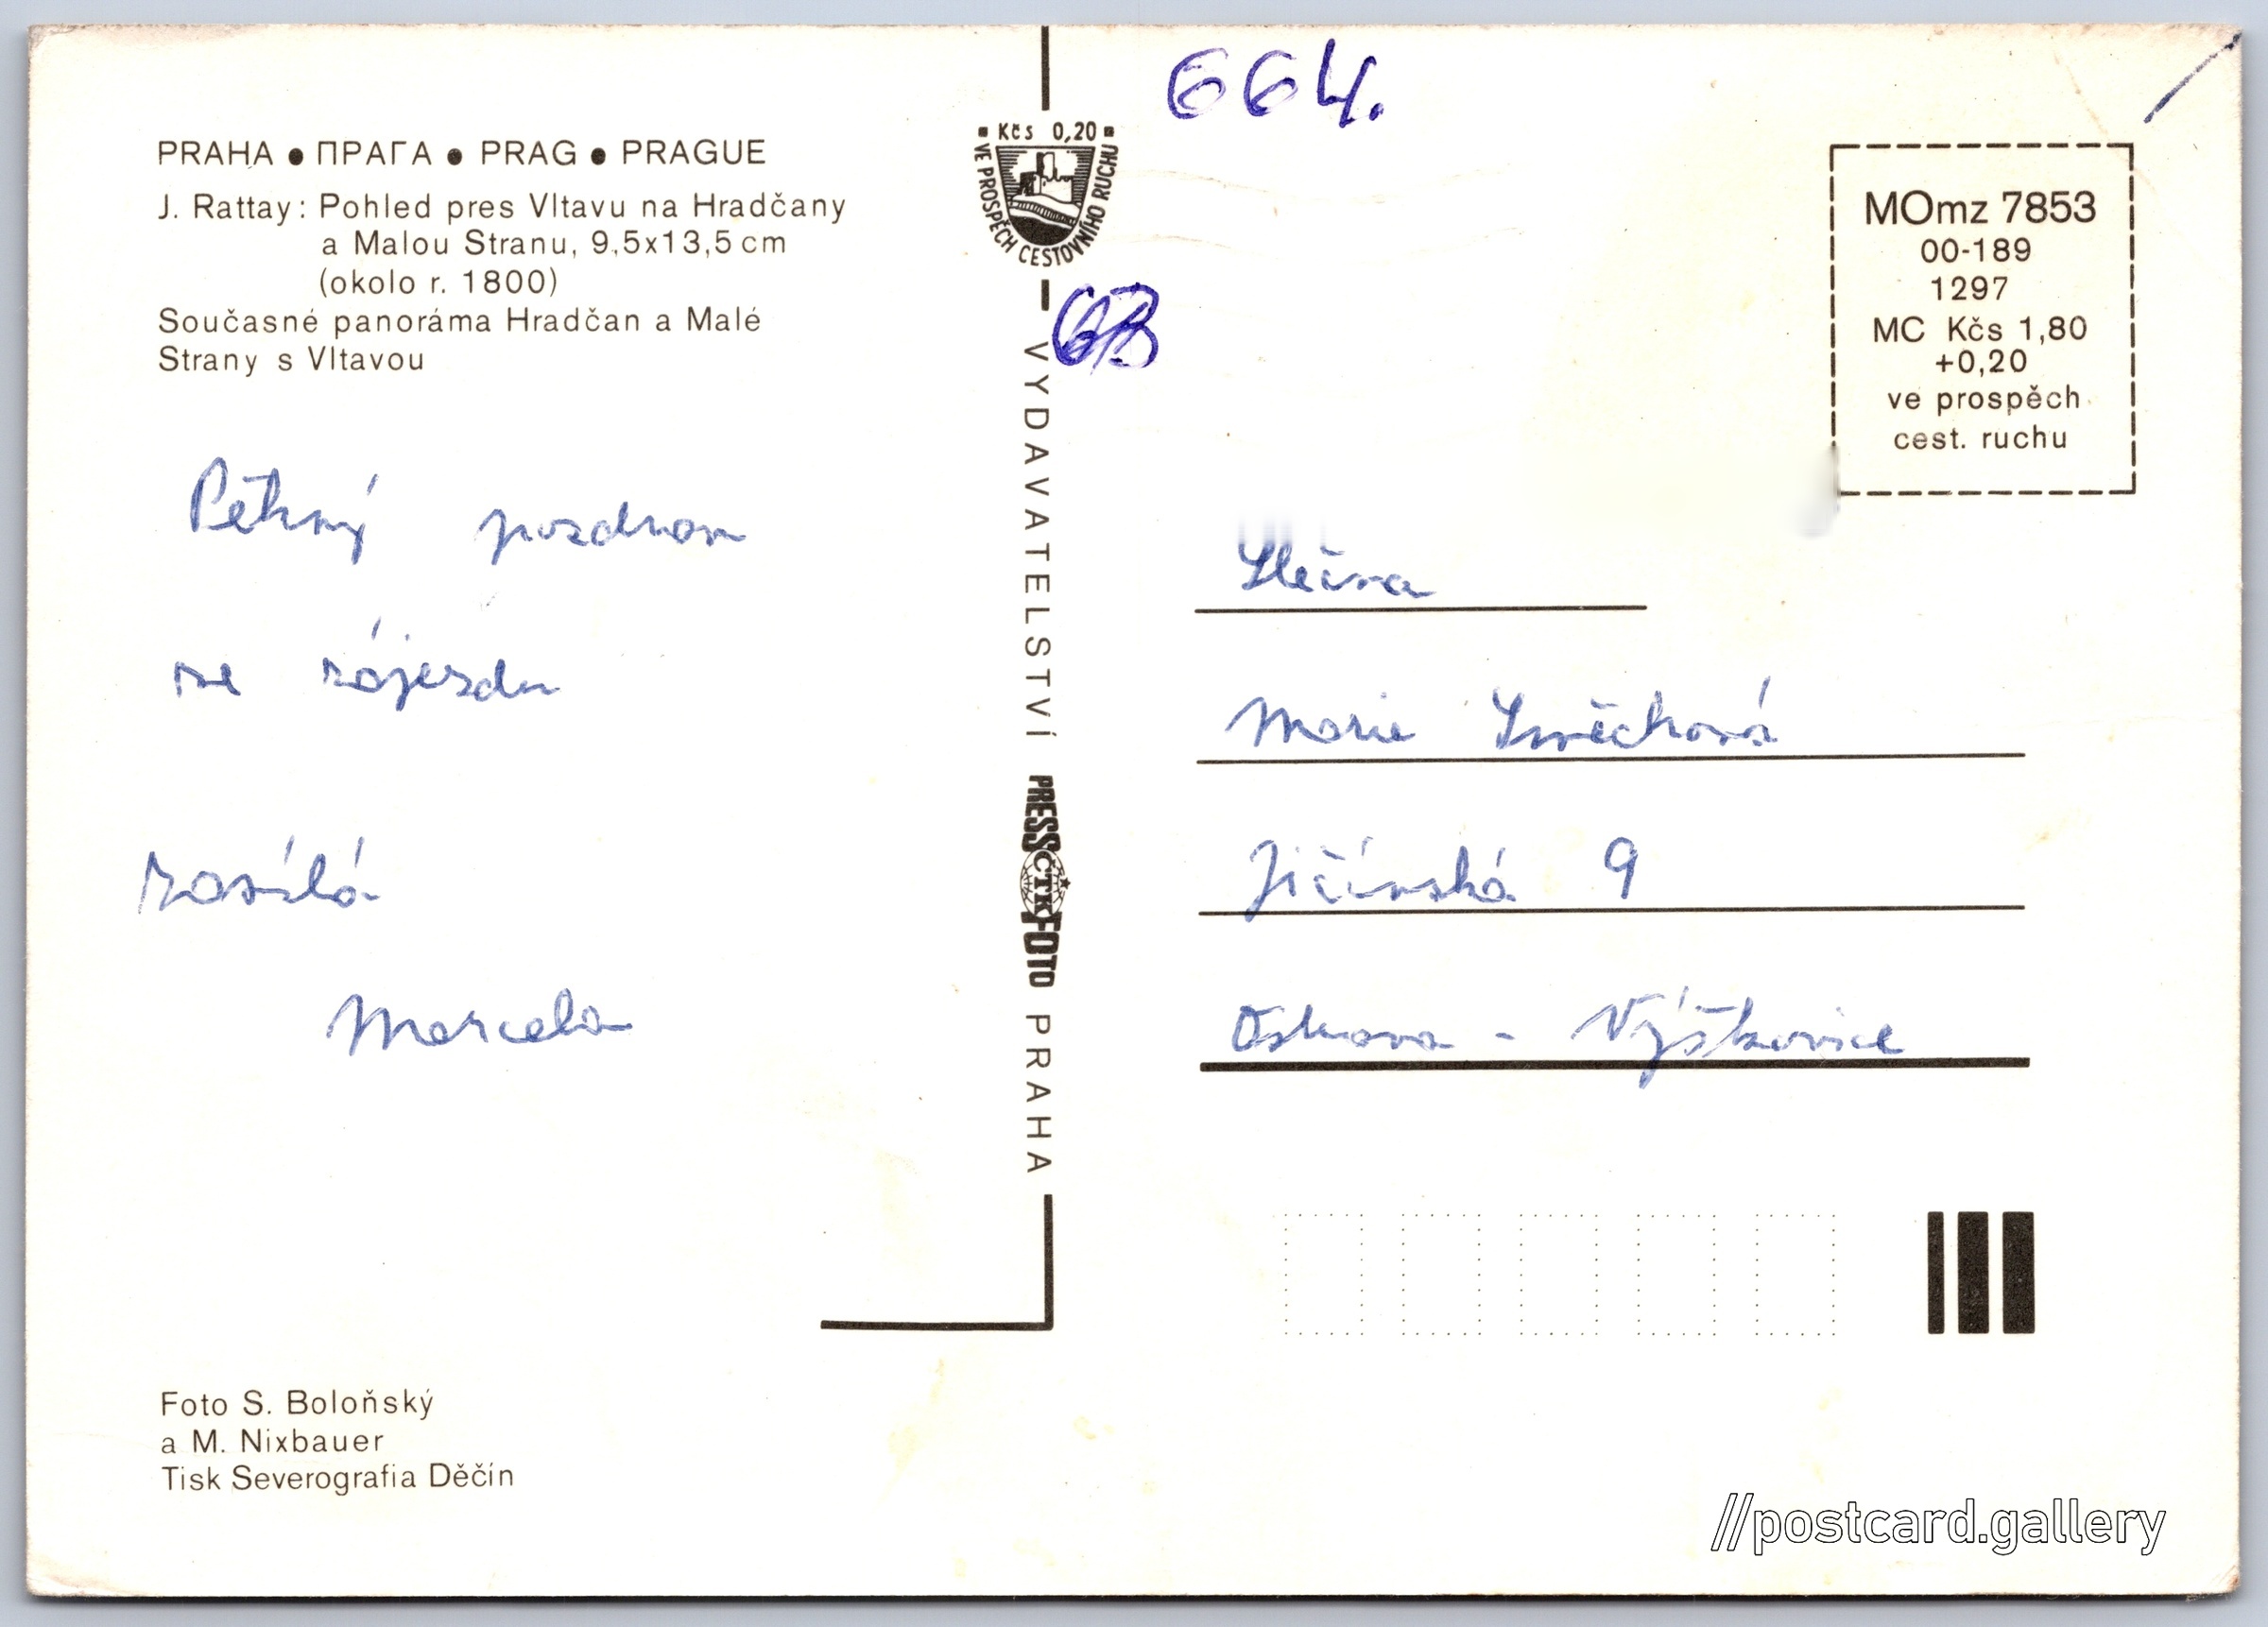 664.
PRAHA ● ПРАГА ● PRAG ● PRAGUE
J. Rattay: Pohled pres Vltavu na Hradčany
a Malou Stranu, 9,5x13,5 cm
(okolo r. 1800)
Současné panoráma Hradčan a Malé
Strany s Vltavou
Pěkný pozdrav
ze zájezdu
zasílá
Marcela
Foto S. Boloňský
a M. Nixbauer
Tisk Severografia Děčín
▪ Kčs 0,20 ▪
VE PROSPĚCH CESTOVNÍHO RUCHU
VYDAVATELSTVÍ PRESSFOTO PRAHA
ČTK
MOmz 7853
00-189
1297
MC Kčs 1,80
+0,20
ve prospěch
cest. ruchu
Slečna
Marie
Jičínská 9
Ostrava - Výškovice
//postcard.gallery